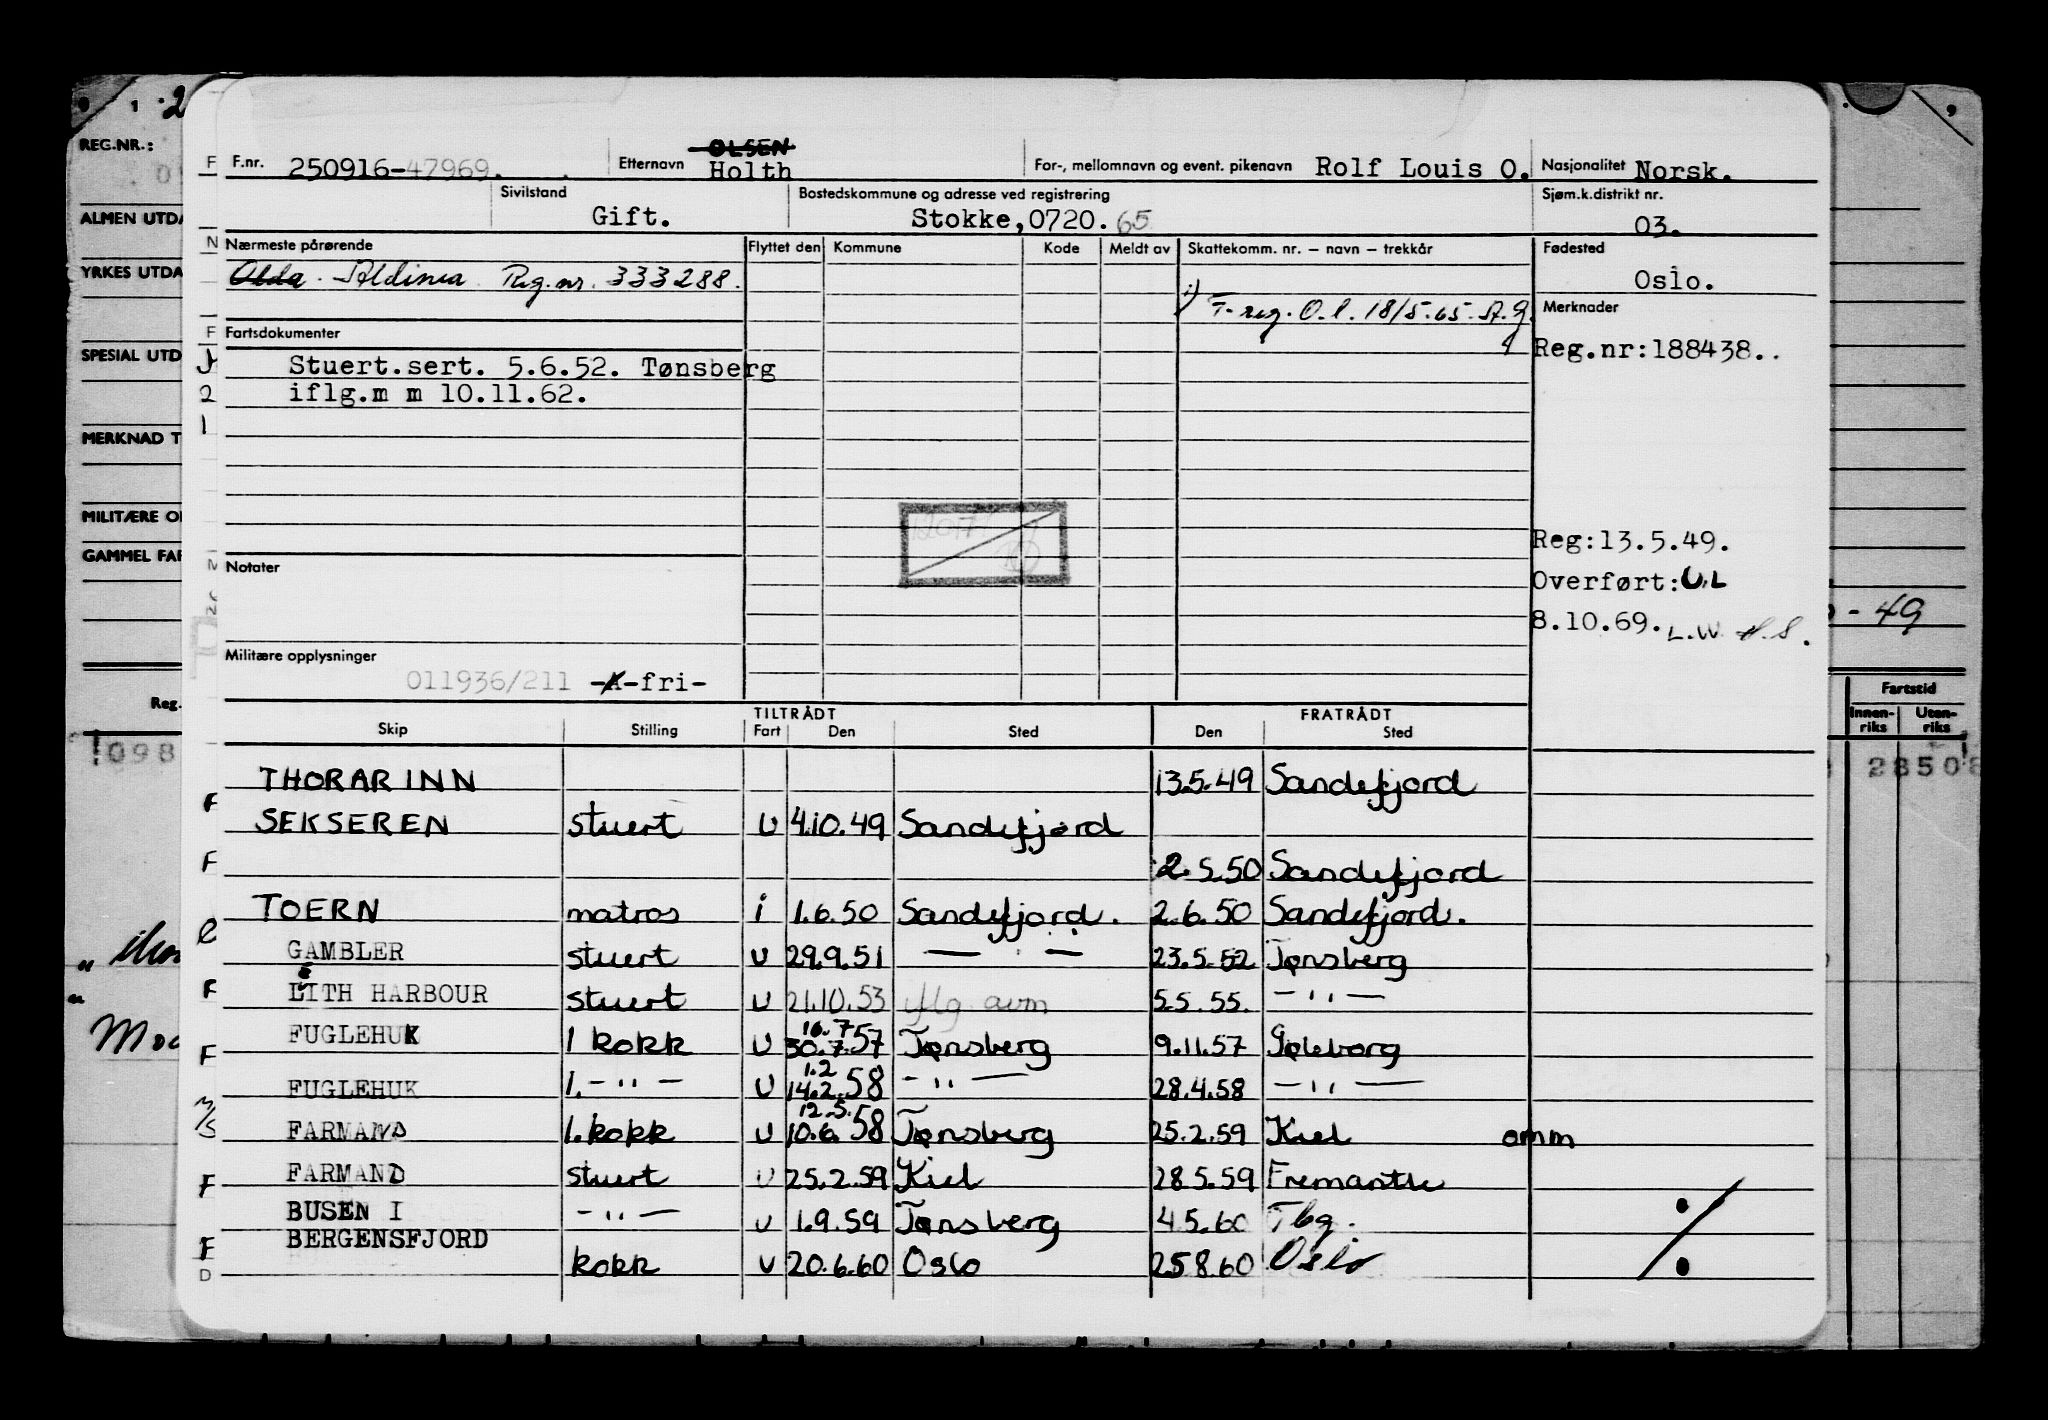 REG.NR.:
ALMEN UTDA
YRKES UTDA
SPESIAL UTD
MERKNAD T
MILITÆRE O
GAMMEL FAR
Reg.
098
- 49
Fartstid
Innen-riks Uten-riks
28508
F.nr. 250916-47969. Etternavn OLSEN Holth For-, mellomnavn og event. pikenavn Rolf Louis O. Nasjonalitet Norsk.
Sivilstand Gift. Bostedskommune og adresse ved registrering Stokke,0720. 65 Sjøm.k.distrikt nr. 03.
Nærmeste pårørende Flyttet den Kommune Kode Meldt av Skattekomm. nr. – navn – trekkår Fødested
Alda Aldinia Reg.nr. 333288. Oslo.
1) F-reg. O.l. 18/5-65-St.g. Merknader
Fartsdokumenter
Reg.nr:188438..
Stuert.sert. 5.6.52. Tønsberg
iflg.m m 10.11.62.
Reg:13.5.49.
Notater
Overført:U.L
8.10.69. L.W. H.S.
Militære opplysninger
011936/211 -A-fri-
TILTRÅDT FRATRÅDT
Skip Stilling Fart Den Sted Den Sted
THORARINN 13.5.49 Sandefjord
SEKSEREN stuert U 4.10.49 Sandefjord
2.5.50 Sandefjord
TOERN matros i 1.6.50 Sandefjord. 2.6.50 Sandefjord.
GAMBLER stuert U 29.9.51 — " — 23.5.52 Tønsberg
LEITH HARBOUR stuert U 21.10.53 iflg. avm 5.5.55. — " —
FUGLEHUK 1 kokk U 16.7 30.7.57 Tønsberg 9.11.57 Gøteborg
FUGLEHUK 1. — " — U 1.2 14.2.58 — " — 28.4.58 — " —
FARMAND 1. kokk U 12.5. 10.6.58 Tønsberg 25.2.59 Kiel omm
FARMAND stuert U 25.2.59 Kiel 28.5.59 Fremantle
BUSEN I — " — U 1.9.59 Tønsberg 4.5.60 Tbg.
BERGENSFJORD kokk U 20.6.60 Oslo 25.8.60 Oslo